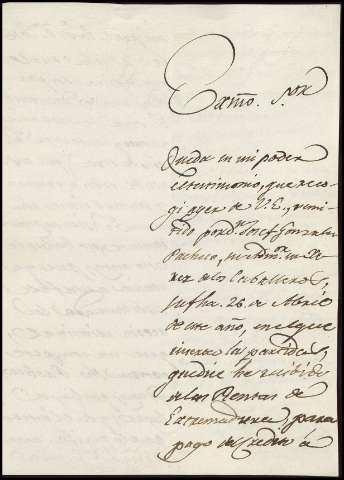 Exmo. S.or
Queda en mi poder
el testimonio, que reco-
gi ayer de V.E., remi-
tido por D.n Josef Gonzalez
Pacheco, su Adm.or en Xe-
rez de los Caballeros,
su fha. 26. de Abril
de este año, en el que
inserta las partidas,
que dice he recibido
de las Rentas de
Extremadura, para
pago del Credito á